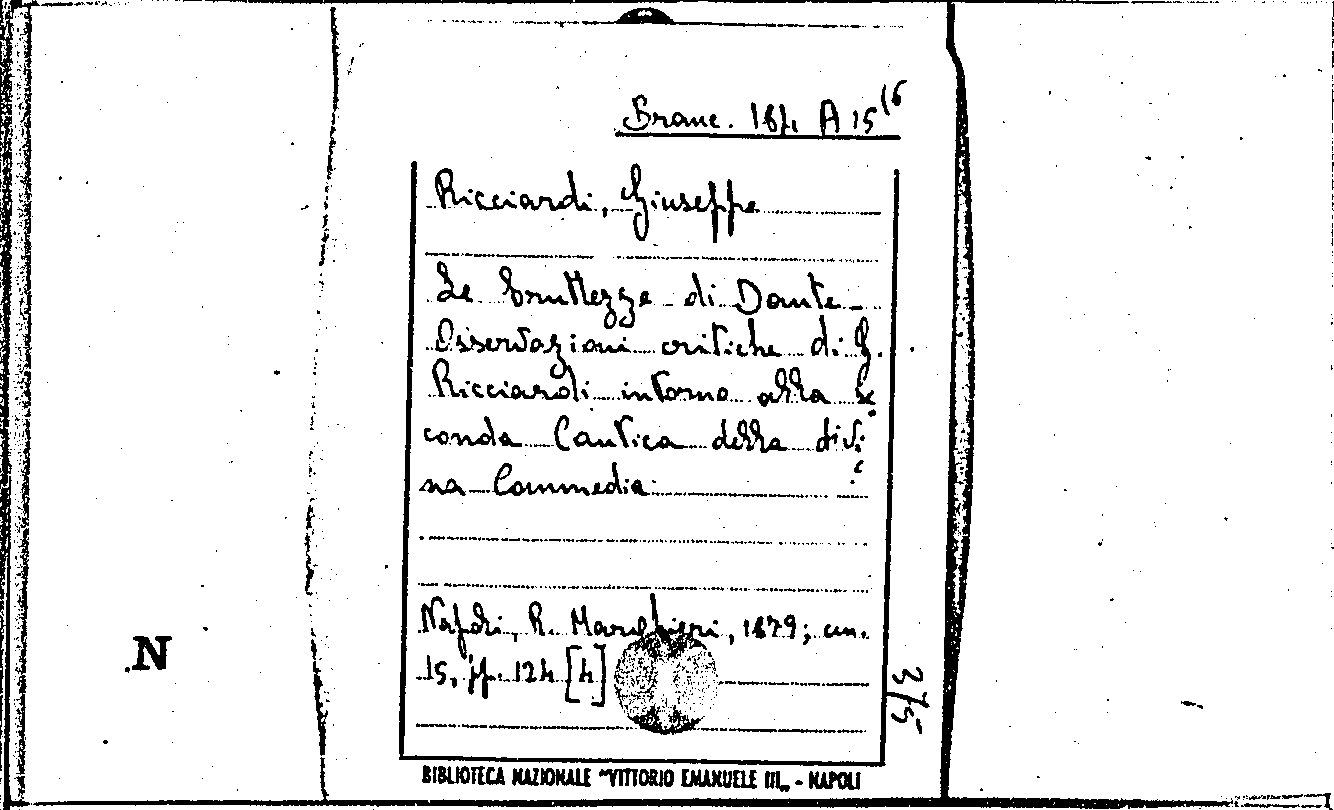 Branc. 184 A 15 (6
Ricciardi, Giuseppe
Le bruttezze di Dante -
Osservazioni critiche di G.
Ricciardi intorno alla Se
conda Cantica della divi
na Commedia.
Napoli, R. Marghieri, 1879; cm.
15, pp. 124 [4]
375
N
BIBLIOTECA NAZIONALE "VITTORIO EMANUELE III„ - NAPOLI